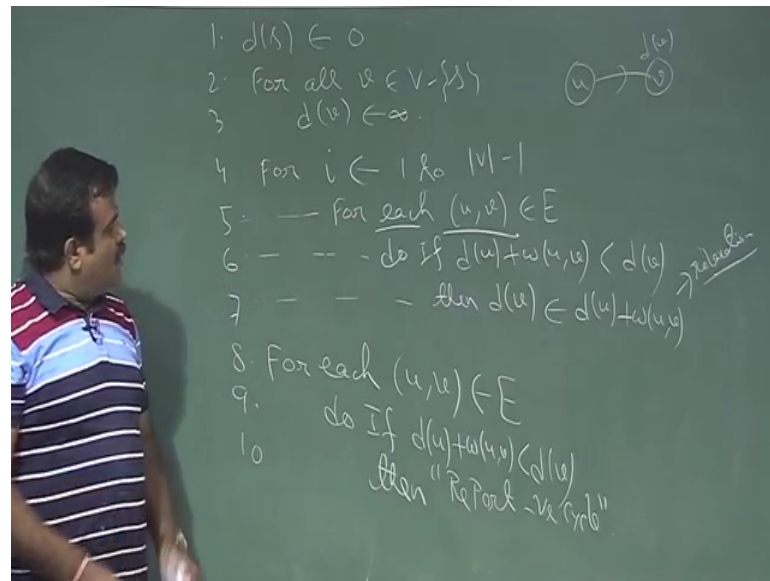 1. d(s) ← 0
2. For all v ∈ V-{s}
3 d(v) ← ∞.
4 For i ← 1 to |V| - 1
5. — For each (u,v) ∈ E
6 — — - do If d(u)+w(u,v) < d(v)
7 — — - then d(v) ← d(u)+w(u,v)
→ relaxation
8. For each (u,v) ∈ E
9. do If d(u)+w(u,v)<d(v)
10 then "Report -ve cycle"
d(v)
u v